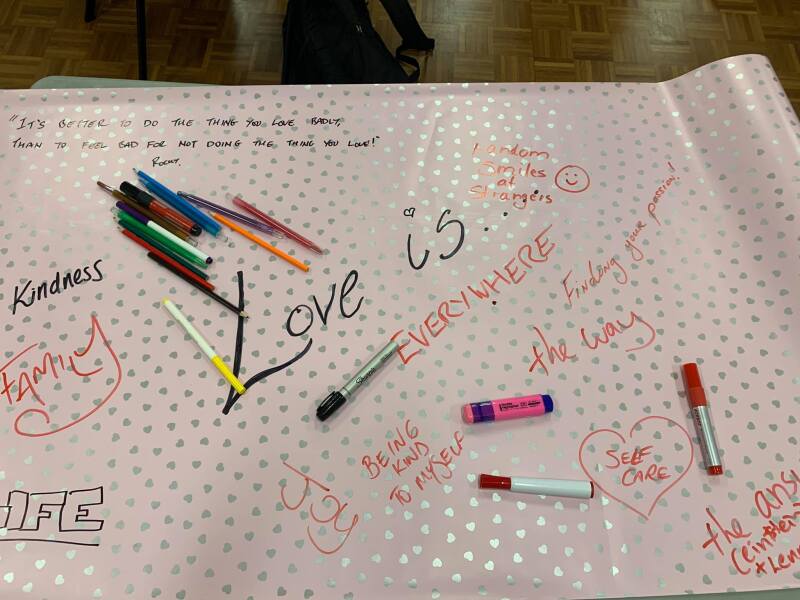 "IT'S BETTER TO DO THE THING YOU LOVE BADLY,
THAN TO FEEL BAD FOR NOT DOING THE THING YOU LOVE!"
Random
Smiles
at
Strangers
Love is...
Kindness
EVERYWHERE
Finding your passion!
the way
FAMILY
Sharpie
BEING
KIND
TO MYSELF
SELF
CARE
Joy
LIFE
the